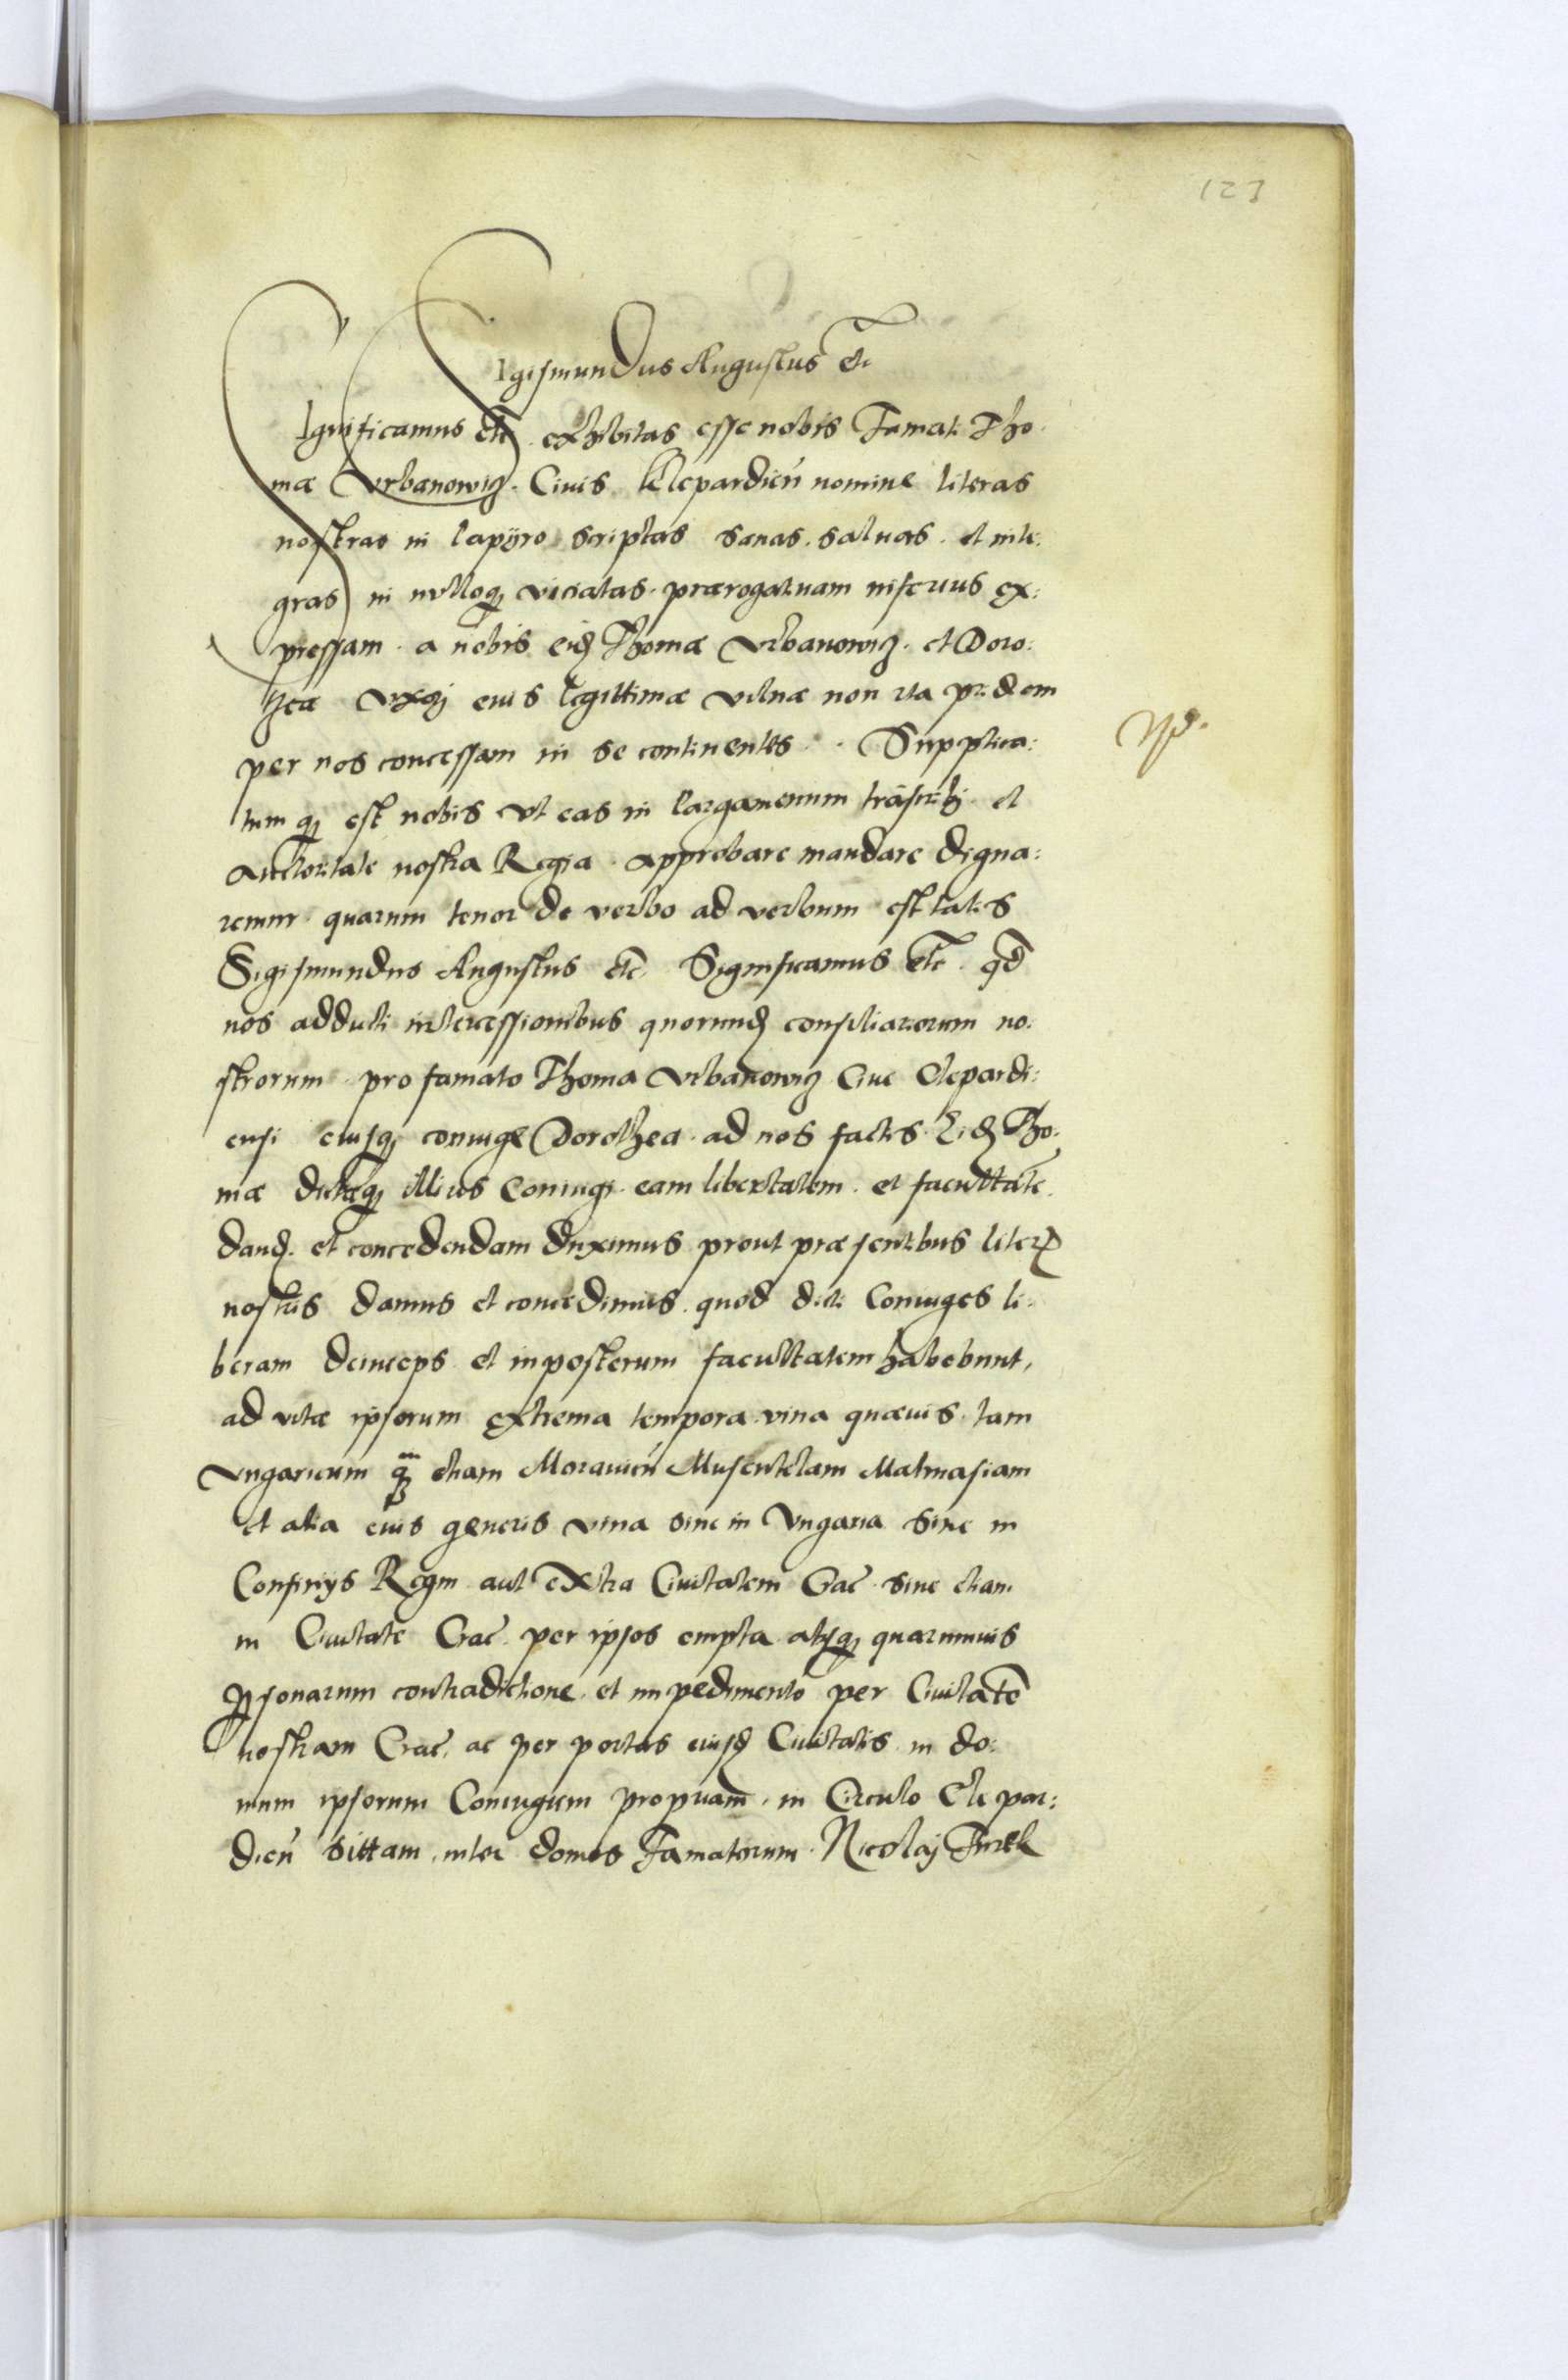 123
Sigismundus Augustus etc
Significamus etc. exhibitas esse nobis Famati Tho:
mæ Vrbanowicz. Ciuis Clepardien̄ nomine literas
nostras in papÿro scriptas sanas. saluas. et inte:
gras in nulloq3 viciatas. prærogatiuam inferius ex:
pressam. a nobis eid Thomæ Vrbanowicz. et Doro:
theæ vxori eius legittimæ Vilnæ non ita pridem
per nos concessam in se continentes. Supplica:
tumq3 est nobis vt eas in pargamenum trāscribi et
auctoritate nostra Regia approbare mandare digna:
remur quarum tenor de verbo ad verbum est talis
Sigismundus Augustus etc. Significamus etc. qd
nos adducti intercessionibus quorund consiliariorum no:
strorum pro famato Thoma Vrbanowicz Ciue Clepardi:
ensi eiusq3 coniuge Dorothea ad nos factis. Eid Tho:
mæ dictæq3 illius Coniugi. eam libertatem et facultatē
dand. et concedendam duximus prout præsentibus literis
nostris damus et concedimus. quod dicti Coniuges li:
beram deinceps et inposterum facultatem habebunt,
ad vitæ ipsorum extrema tempora vina quæuis tam
Vngaricum q̄3 etiam Morauicū Muscatelam Malmasiam
et alia eius generis vina siue in Vngaria siue in
Confinÿs Regni aut extra Ciuitatem Crac̄ siue etiam
in Ciuitate Crac̄. per ipsos empta absq3 quarumuis
Personarum contradictione et impedimento per Ciuitatē
nostram Crac̄. ac per portas eiusd Ciuitatis in do:
mum ipsorum Coniugum propriam, in Circulo Clepar:
dien̄ sittam, inter domos Famatorum. Nicolaj Turek